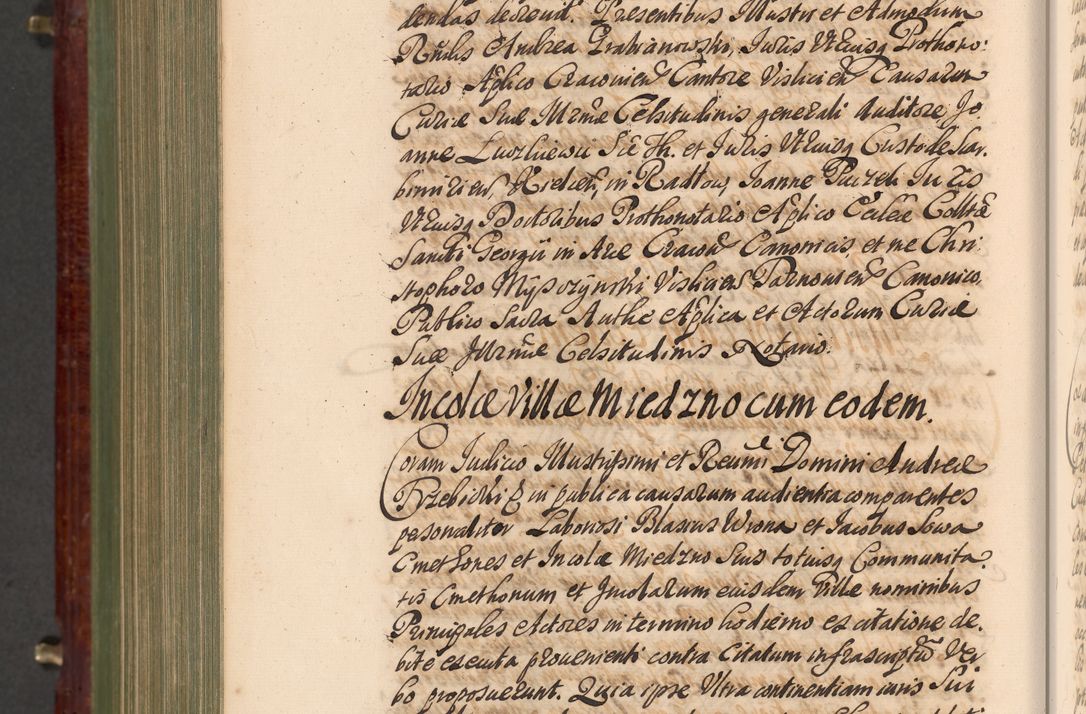 dendas decreuit. Presentibus Illustri et Admodum
Rndis Andrea Grabianowski, Juris Utriusq Prothono:
tario Aplico Cracouien Cantore Vislicien Causarum
Curiæ Suæ Illrmæ Celsitudinis generali Auditore, Jo
anne Luzliewicz Sæ Th. et Juris Utriusq Custode Scar.
bimirien, Kielcen, in Radłow, Joanne Puczek Juris
Utriusq Doctoribus Prothonotario Aplico Ecclæ Colltæ
Sancti Georgii in Arce Cracou Canonicis, et me Chri
stophoro Myszczynski Vislicien Tarnouien Canonico,
Publico Sacra Authe Aplica et Actorum Curiæ
Suæ Illrmæ Celsitudinis Notario.
Incolæ Villæ Miedzno cum eodem.
Coram Judicio Illustrissimi et Reumi Domini Andreæ
Trzebicki E in publica causarum audientia comparentes
personaliter Laboriosi Blasius Wrona et Jacobus Sowa
Cmethones et Incolæ Miedzno Suis totiusq Communita
tis Cmethonum et Incolarum eiusdem Villæ nominibus
Principales Actores in termino hodierno ex citatione de.
bite executa prouenienti contra Citatum infrascriptu Ver
bo proposuerunt. Quia ipse Ultra continentiam iuris Sui